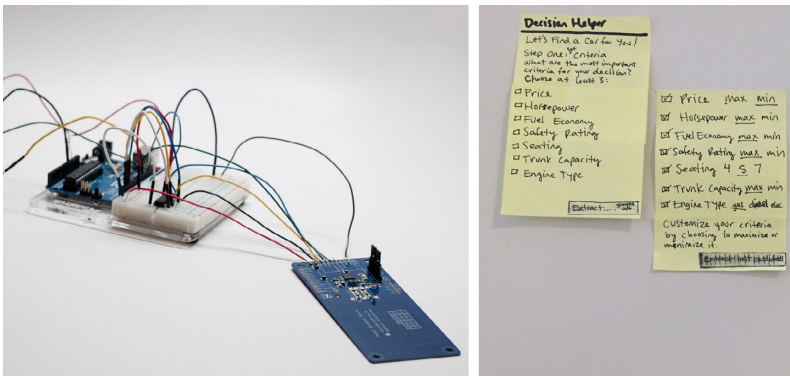 Decision Helper
Let's Find a Car for You!
Step One: Set Criteria
What are the most important
criteria for your decision?
Choose at least 3:
Price
Horsepower
Fuel Economy
Safety Rating
Seating
Trunk Capacity
Engine Type
Extract....
Price max min
Horsepower max min
Fuel Economy max min
Safety Rating max min
Seating 4 5 7
Trunk Capacity max min
Engine Type gas diesel elec
Customize your criteria
by choosing to maximize or
minimize it.
Extract best candidates